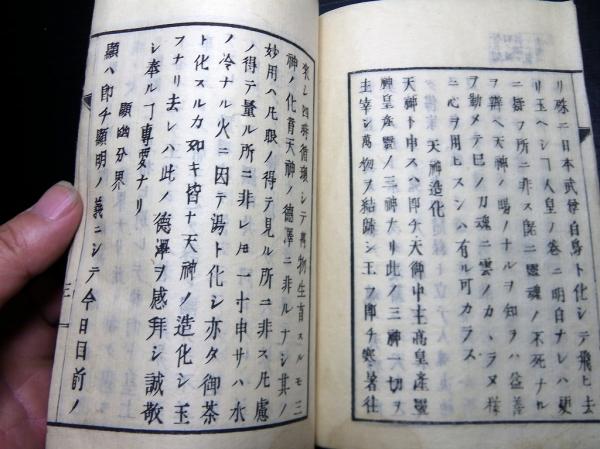 リ殊ニ日本武尊白鳥ト化シテ飛ヒ去
リ玉ヘシヿ人皇ノ巻ニ明白ナレハ更
ニ疑フ所ニ非ス既ニ靈魂ノ不死ナル
ヲ辨ヘ天神ノ賜ノナルヲ知ラハ益善
ヲ勤メテ己ノカ魂ニ雲ノカヽラヌ様
ニ心ヲ用ヒスンハ有ル可カラス
天神造化
天神ト申スハ即チ天御中主高皇産靈
神皇産靈ノ三神ナリ此ノ三神一切ヲ
主宰シ萬物ヲ結跡シ玉フ即チ寒暑往
來シ四時循環シテ萬物生育スルモ三
神ノ化育天神ノ德澤ニ非ルナシ其ノ
妙用ハ凡眼ノ得テ見ル所ニ非ス凡慮
ノ得テ量ル所ニ非レ𪜈一寸申サハ水
ノ冷ナル火ニ因テ湯ト化シ亦タ御茶
ト化スルカ如キ皆ナ天神ノ造化シ玉
フナリ去レハ此ノ德澤ヲ感拜シ誠敬
シ奉ルヿ專要ナリ
顯幽分界
顯ハ即チ顯明ノ義ニシテ今日目前ノ
三